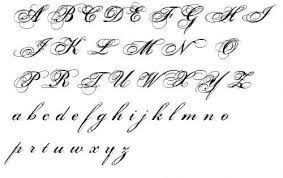 A B C D E F G H I
J K L M N O
P R T U W X Y Z
a b c d e f g h i j k l m n o
p r t u w x y z